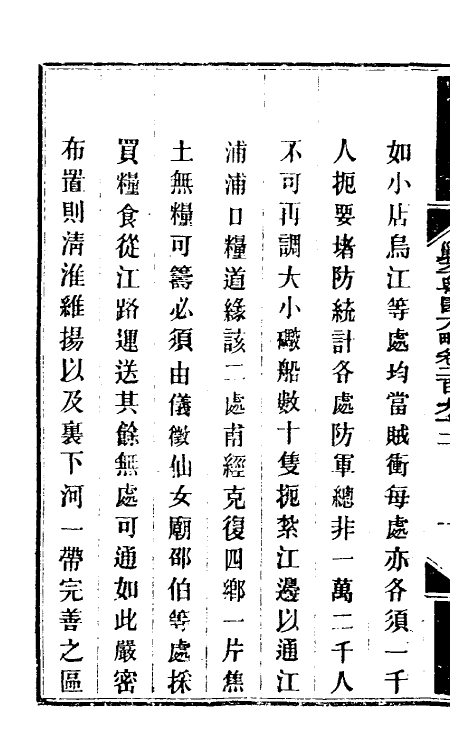 如小店烏江等處均當賊衝每處亦各須一千
人扼要堵防統計各處防軍總非一萬二千人
不可再調大小礮船數十隻扼紮江邊以通江
浦浦口糧道緣該二處甫經克復四鄉一片焦
土無糧可籌必須由儀徵仙女廟邵伯等處採
買糧食從江路運送其餘無處可通如此嚴密
布置則清淮維揚以及裏下河一帶完善之區